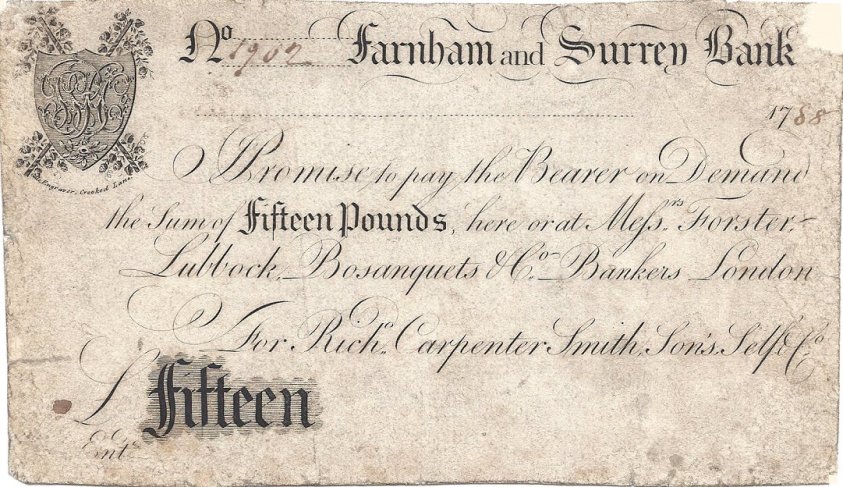 No 1902 Farnham and Surrey Bank
1788
I Promise to pay the Bearer on Demand
the Sum of Fifteen Pounds, here or at Messrs. Forster,
Lubbock, Bosanquets & Co. Bankers London
For Richd. Carpenter Smith, Sons, Self & Co.
£ Fifteen
Entd.
Engraver, Crooked Lane